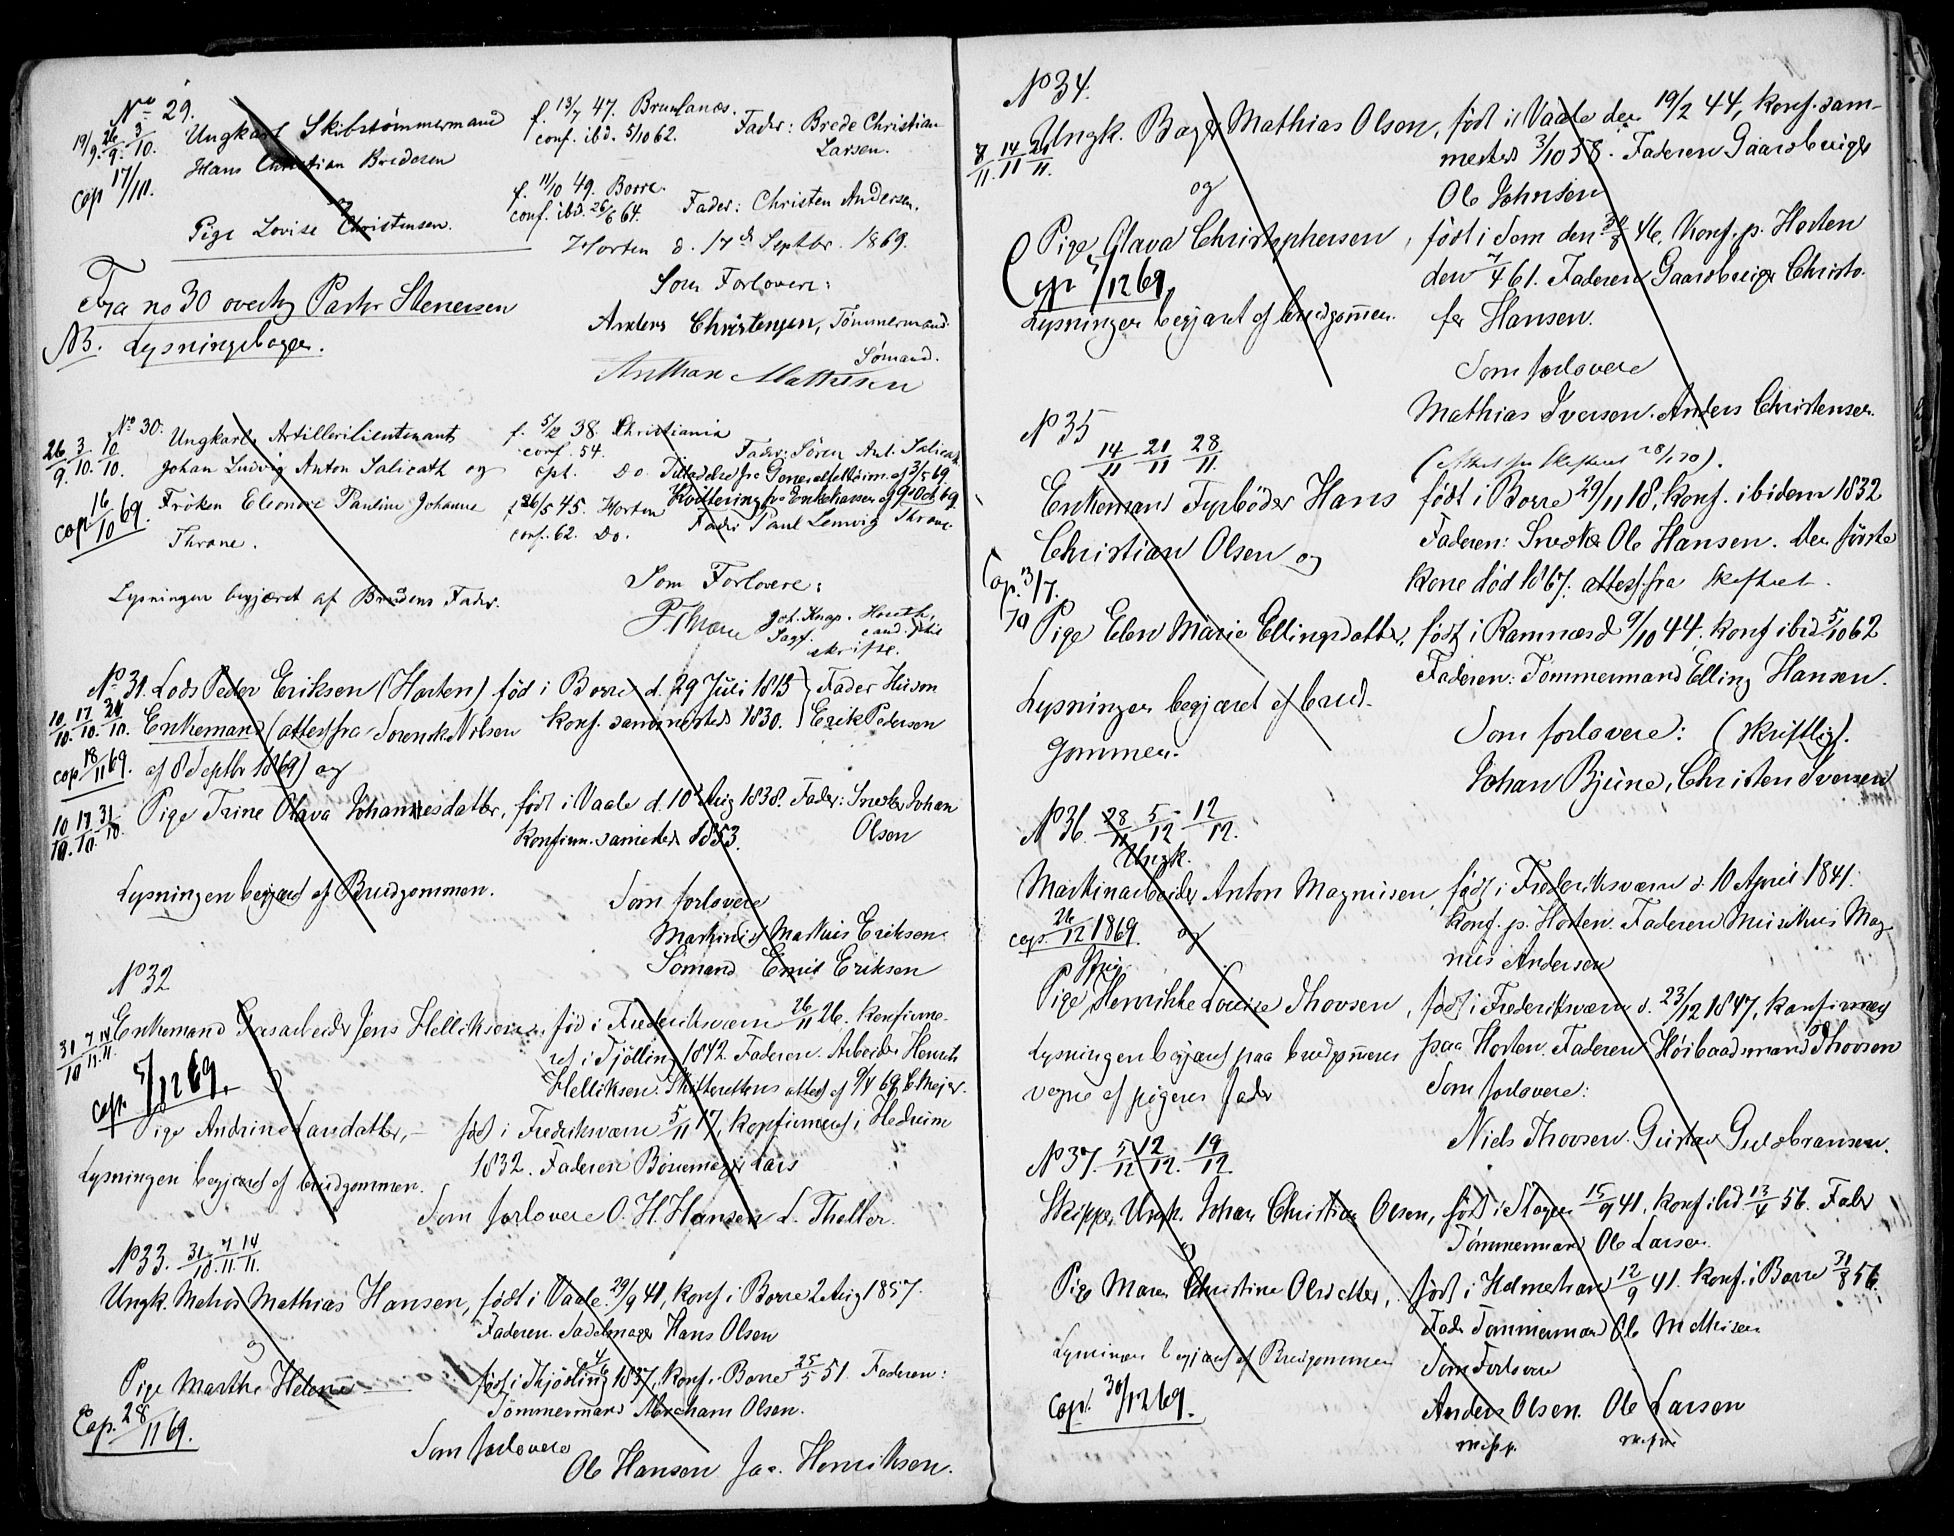 No 29.
19/9. 26/9. 3/10. Ungkarl Skibstømmermand
Hans Christian Bredesen
f. 13/7 47. Brunlanæs.
conf. ibd. 5/10 62. Fader: Brede Christian
Larsen.
cop 17/10.
og
Pige Lovise Christensen.
f. 11/10 49. Borre.
conf. ibd. 26/6 64. Fader: Christen Andersen.
Horten d. 17de Septbr. 1869.
Som Forlovere:
Anders Christensen, Tømmermand.
Sømand.
Anthon Mathisen
Fra no 30 overtog Pastor Stenersen
NB. Lysningsbogen.
No 30.
26/9. 3/10. 10/10. Ungkarl, Artillerilieutenant
Johan Ludvig Anton Salicath og
f. 5/2 38. Christiania
conf. 54. Fader: Søren Ant. Salicath
opt. Do. Tilladelse fra Generalfelttøim. af 3/5 69.
Kvittering fra Enkekassen af 9 Octb. 69.
cop 16/10 69.
Frøken Eleonore Pauline Johanne
Throne.
f. 26/5 45. Horten
conf. 62. Do. Fader Paul Lemvig Throne
Lysningen begjæret af Brudens Fader.
Som Forlovere:
P. Throne Joh. Knap. Horten,
Sagf. cand.
skriftl.
No 31. Lods Peder Eriksen (Horten) fød i Borre d. 29 Juli 1815 } Fader Husm
10/10. 17/10. 24/10. Enkemand (attest fra Sorensk Nilsen konf. sammesteds 1830. } Erik Pedersen
cop 18/11 69. af 8 Septbr 1869) og
10/10. 17/10. 31/10. Pige Trine Olava Johannesdatter, født i Vaale d. 10de Aug 1838. Fader: Snedker Johan
konfirm. samesteds 1853. Olsen
Lysningen begjæret af Brudgommen.
Som forlovere
Martinius Mathis Eriksen
Sømand Emil Eriksen
No 32
31/10 7/11. 14/11. Enkemand Grasarbeider Jens Helliksen, fød i Frederiksværn 26/11 26. konfirme-
ret i Tjølling 1842. Faderen. Arbeider Henrik
Helliksen. Skifterettens attest af 9/4 69 C Mejer.
cop. 5/12 69.
og
Pige Andrine Larsdatter, født i Frederiksværn 5/11 17, konfirmeret i Hedrum
1832. Faderen Børnemager Lars
Lysningen begjæret af brudgommen.
Som forlovere O. H. Hansen L. Theller.
No 33. 31/10. 7/11. 14/11.
Ungk. Matros Mathias Hansen, født i Vaale 29/9 41, konf i Borre 2 Aug 1857.
Faderen. Sadelmager Hans Olsen
og
Pige Marthe Helene født i Thjødling 4/6 1837, konf. Borre 25/5 51. Faderen:
Tømmermand Abraham Olsen.
Cop. 28/11 69.
Som forlovere
Ole Hansen Jac. Henriksen.
No 34.
8/11. 14/11 21/11. Ungk. Bager Mathias Olsen, født i Vaale den 19/2 44, konf. sam-
mesteds 3/10 58. Faderen Gaardbruger
Ole Johnsen
og
Pige Olava Christophersen, født i Sem den 30/8 46, Konf. p. Horten
den 7/4 61. Faderen Gaardbruger Christo-
fer Hansen.
Cop 5/12 69.
Lysningen begjæret af brudgommen.
Som forlovere
Mathias Iversen. Anders Christensen.
No 35
14/11 21/11 28/11
(attest fra Skifteret 28/1 70).
Enkemand Fyrbøder Hans
Christian Olsen og
født i Borre 29/11 18, konf. ibidem 1832
Faderen: Snedker Ole Hansen. Den første
kone død 1867: attest fra Skifteret.
Cop. 13/1. 70
Pige Elen Marie Ellingsdatter, født i Ramnæs d 9/10 44, konf ibid 5/10 62
Faderen: Tømmermand Elling Hansen.
Lysningen begjæret af brud-
gommen.
Som forlovere: (skriftlig).
Johan Bjune, Christen Iversen
No 36. 28/11 5/12 12/12.
Ungk.
Maskinarbeider Anton Magnusen, født i Frederiksværn d. 10 April 1841.
konf. p. Horten. Faderen Musikus Mag-
nus Andersen
cop. 26/12 1869. og
Pige
Pige Henrikke Louise Thovsen, født i Frederiksværn d. 23/12 1847, konfirmeret
paa Horten. Faderen Høibaadsmand Thovsen
Lysningen begjæret paa brudgommens
vegne af pigens fader
Som forlovere:
Niels Thovsen. Gustav Guldbransen.
No 37. 5/12 12/12. 19/12.
Skipper, Ungk. Johan Christian Olsen, født i Slagen 15/9 41. konf ibid 13/4 56. Fader
Tømmermand Ole Larsen.
og
Pige Maren Christine Olsdatter, født i Holmestrand 12/9 41. konf. i Borre 31/8 56.
Fader Tømmermand Ole Mathisen
Lysningen begjæret af Brudgommen
Som Forlovere
Cop. 30/12 69.
Anders Olsen. Ole Larsen
m.f.p. m.f.p.